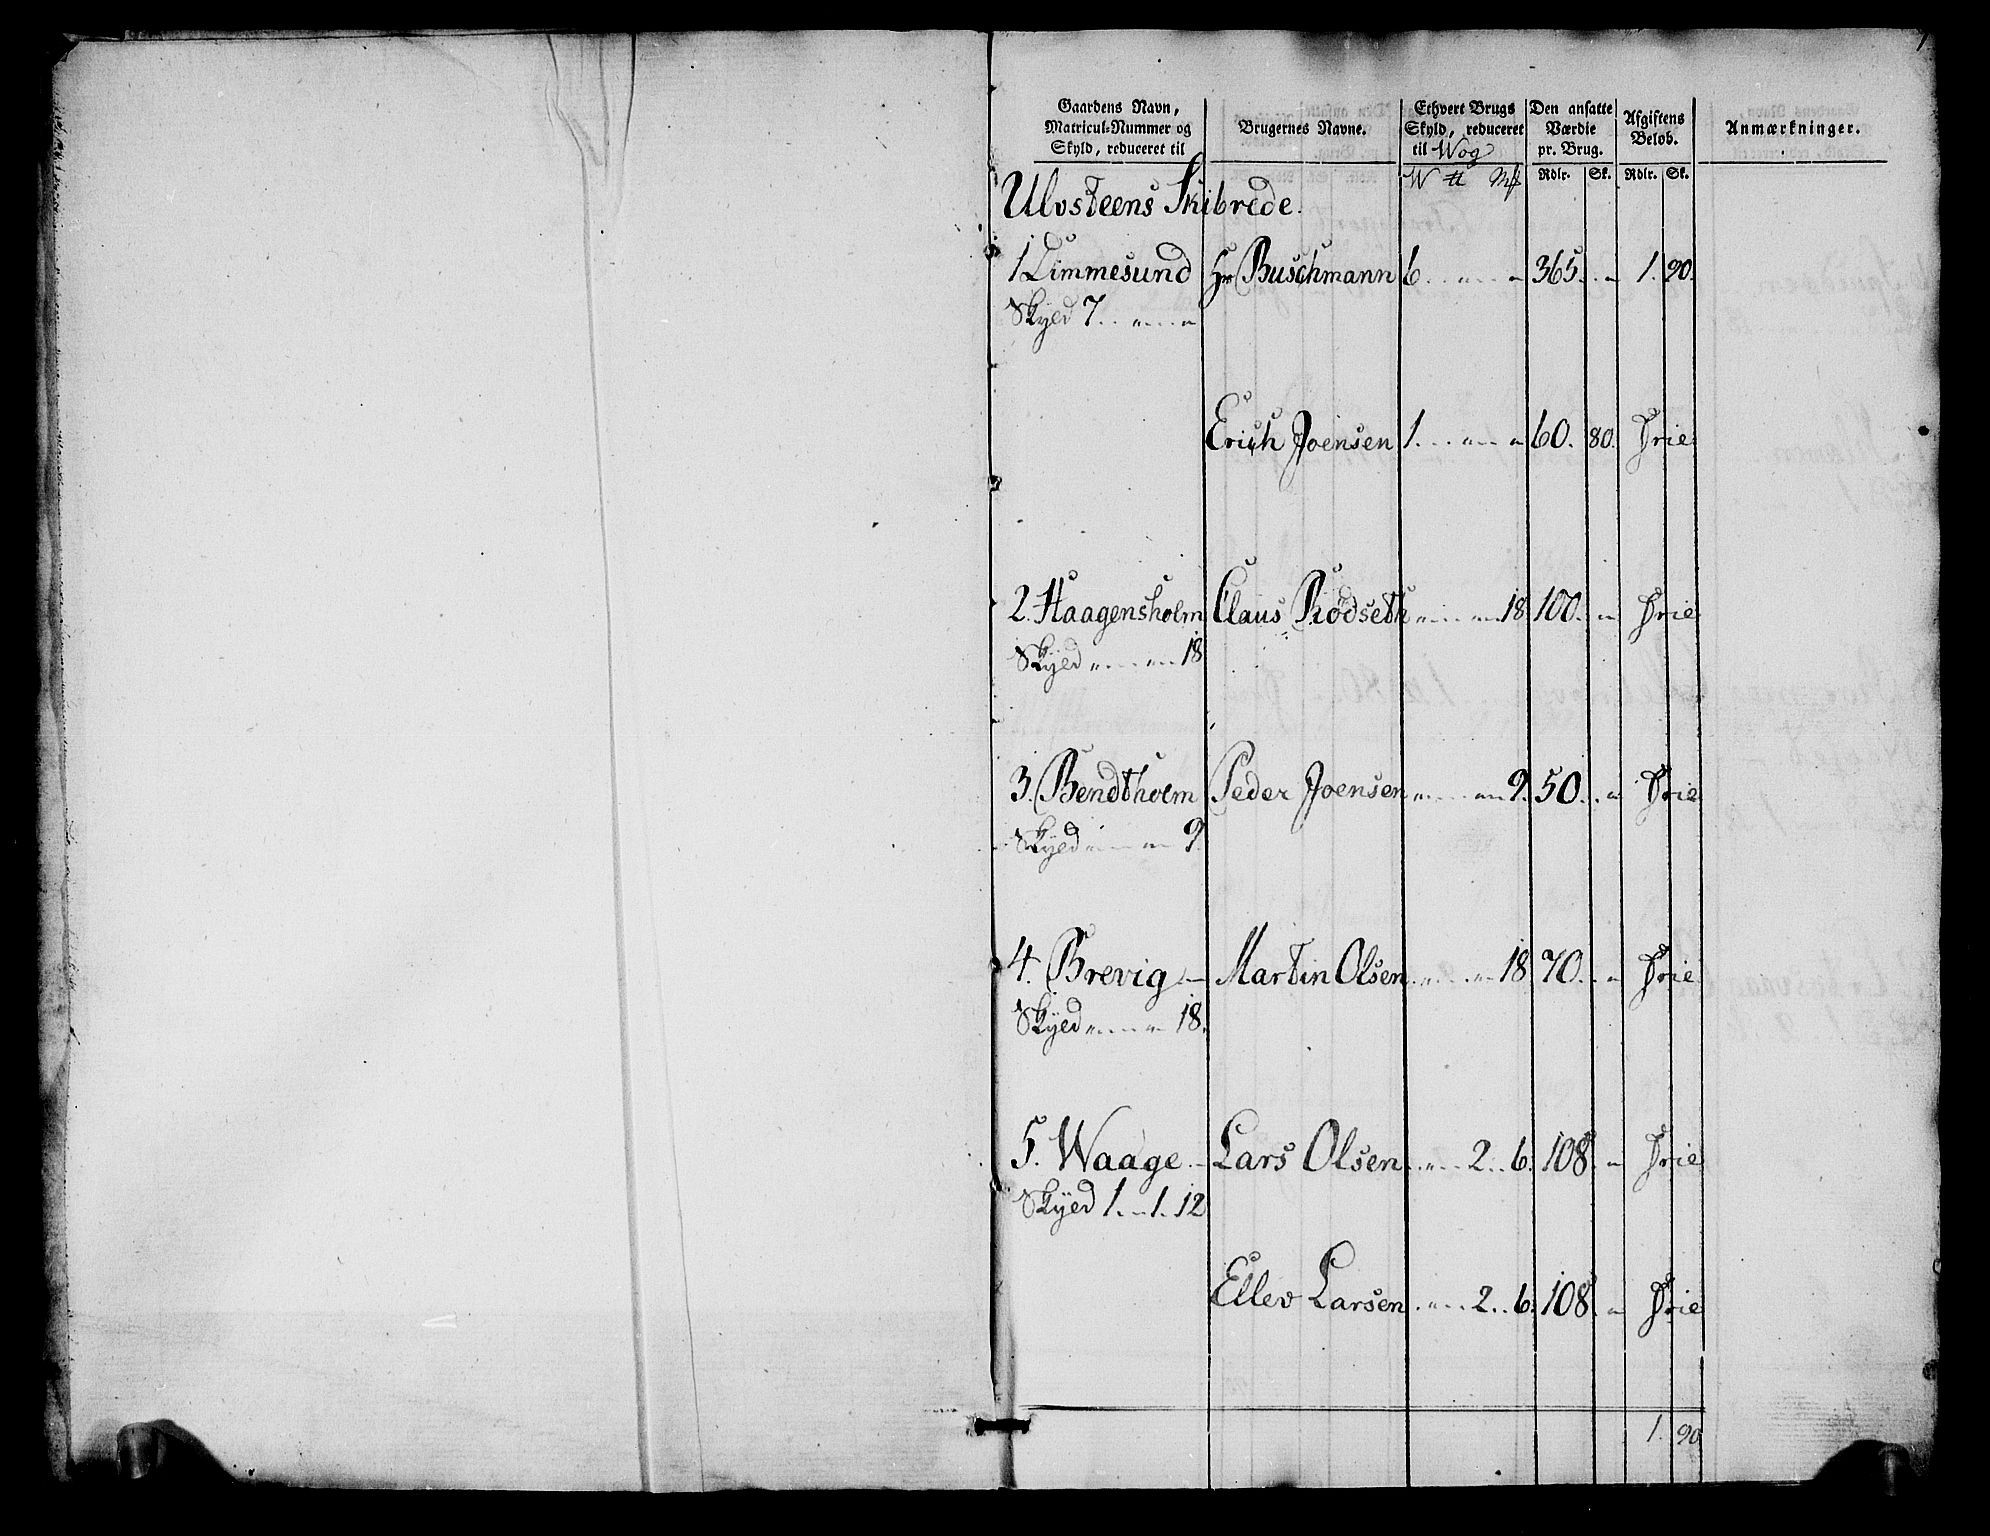 1
Gaardens Navn, Matricul-Nummer og Skyld, reduceret til | Brugernes Navne. | Ethvert Brugs Skyld, reduceret til Wog | Den ansatte Værdie pr. Brug. | Afgiftens Beløb. | Anmærkninger.
W ℔ Mƒ | Rdlr. | Sk. | Rdlr. | Sk.
Ulvsteens Skibrede.
1 Limmesund | Hr Buschmann | 6. " " | 365. | " | 1. | 90.
Skyld 7. " "
Erich Joensen | 1. " " | 60. | 80. | Frie
2. Haagensholm | Claus Rödseth | " " 18 | 100. | " | Frie
Skyld " " 18
3. Bendtholm | Peder Joensen | " " 9. | 50. | " | Frie
Skyld " " 9.
4. Brevig | Martin Olsen | " " 18 | 70. | " | Frie
Skyld " " 18.
5. Waage | Lars Olsen | " 2. 6. | 108. | " | Frie
Skyld 1. " 1. 12
Ellev Larsen | " 2. 6. | 108. | " | Frie
1. | 90